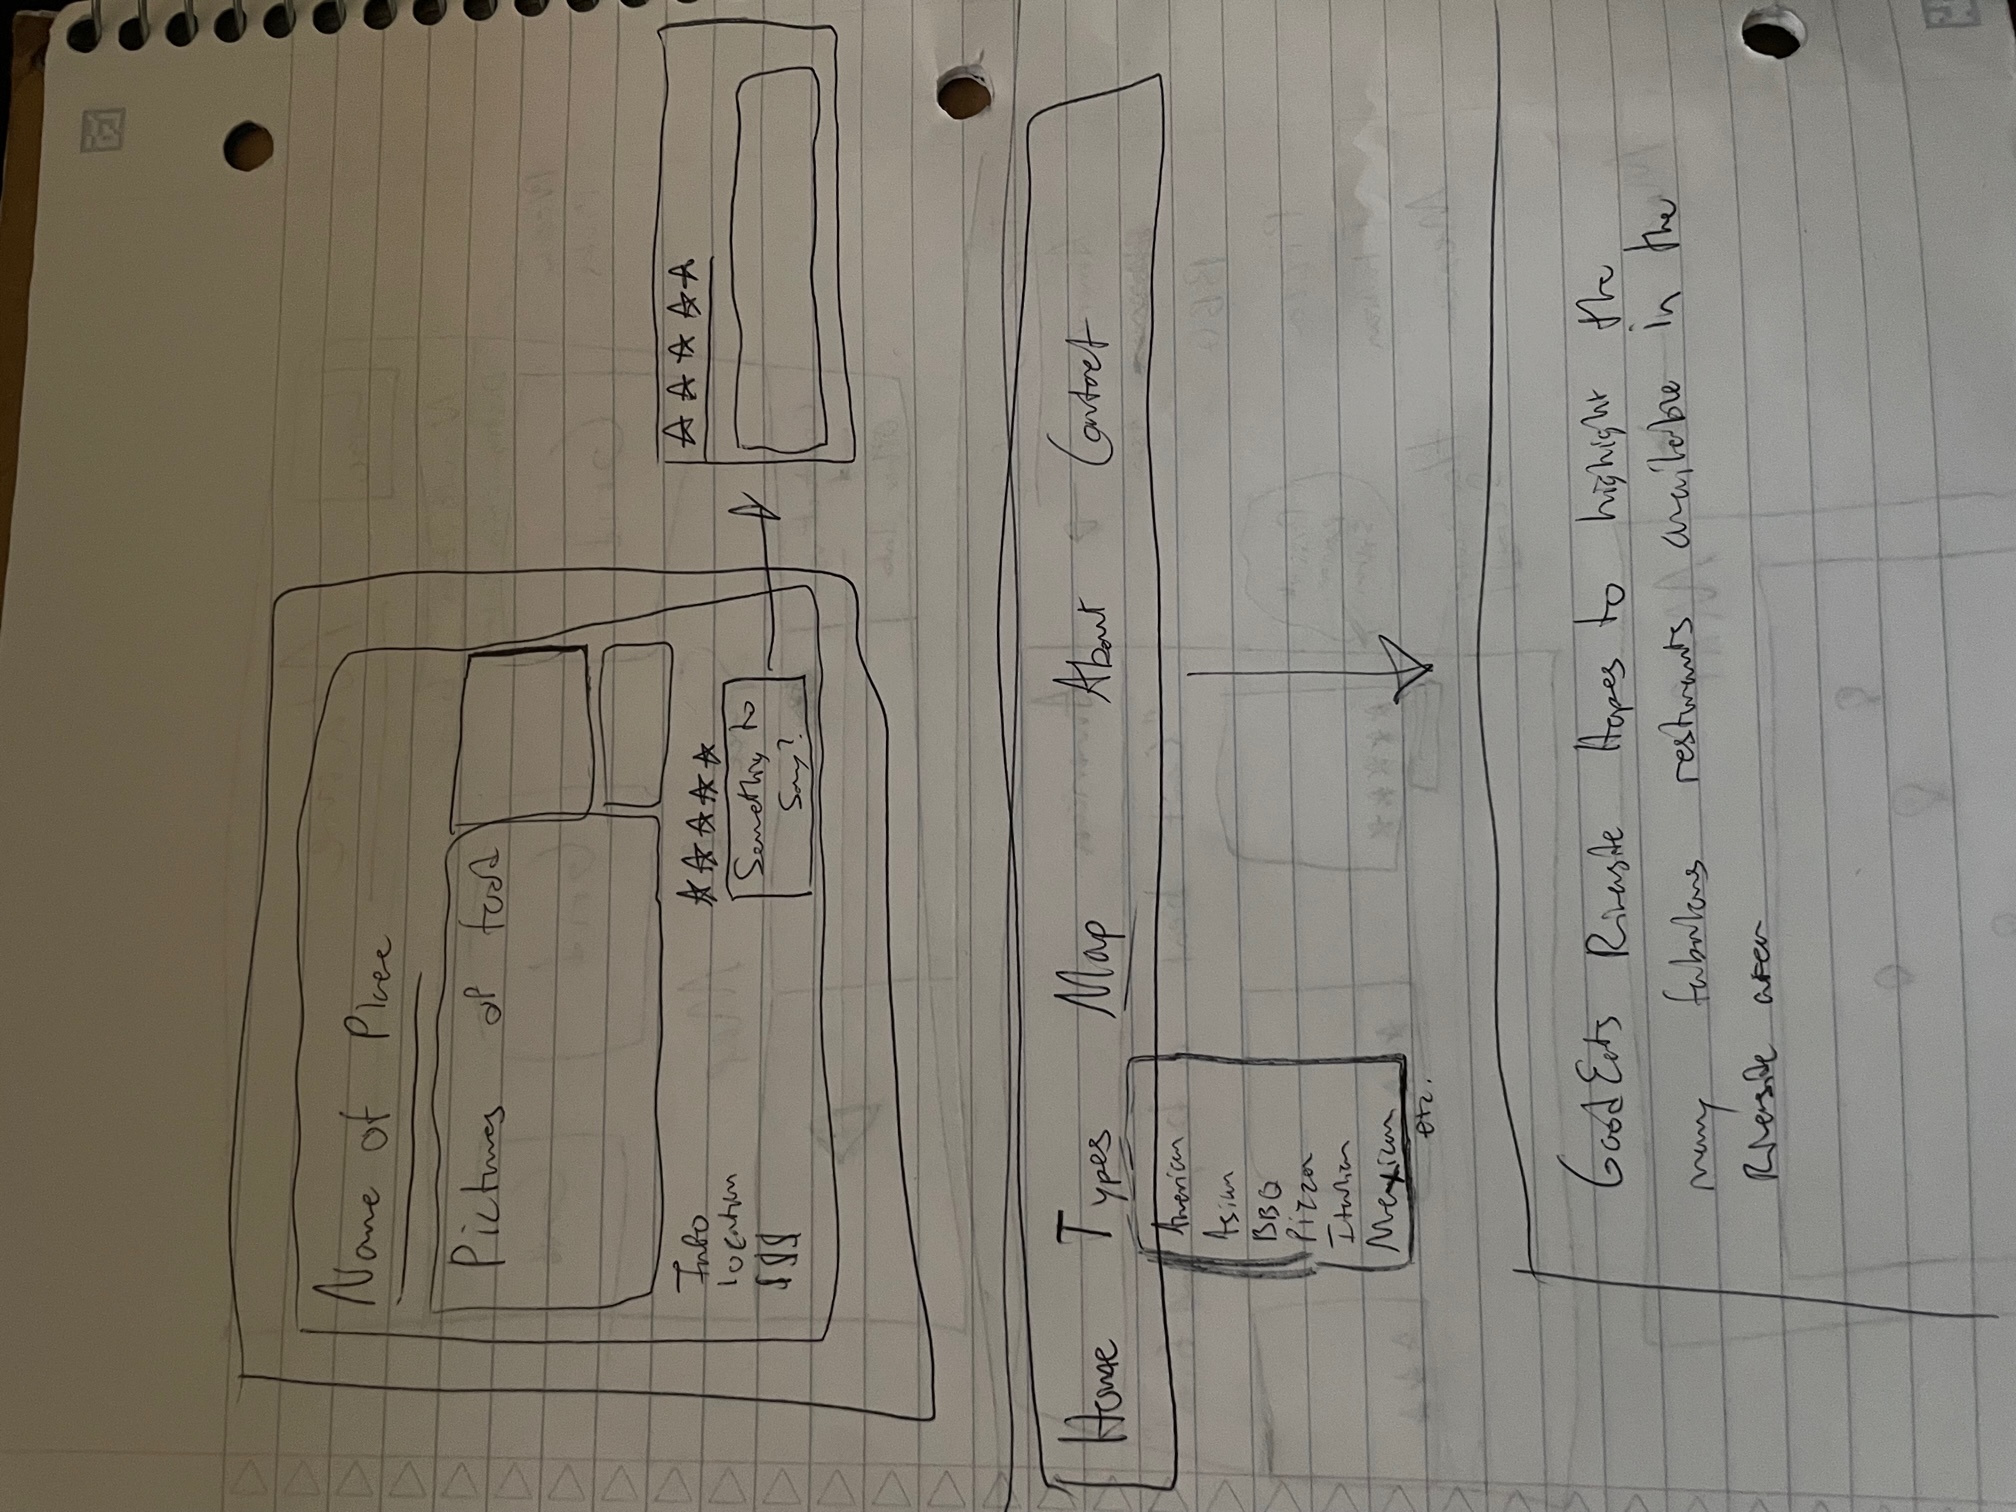 Name of Place
Pictures of food
Info
location
$$$
Something to
Say?
Home Types Map About Contact
American
Asian
BBQ
Pizza
Italian
Mexican
etc.
Good Eats Riverside Hopes to highlight the
many fabulous resturants available in the
Riverside area